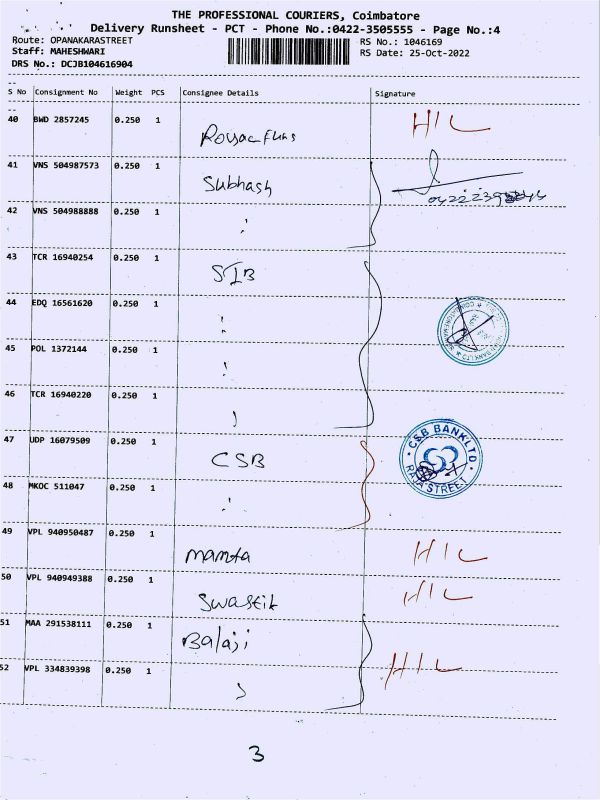 THE PROFESSIONAL COURIERS, Coimbatore
Delivery Runsheet - PCT - Phone No.:0422-3505555 - Page No.:4
Route: OPANAKARASTREET
RS No.: 1046169
Staff: MAHESHWARI
RS Date: 25-Oct-2022
DRS No.: DCJB104616904
S No Consignment No Weight PCS Consignee Details Signature
40 BWD 2857245 0.250 1 HIL
41 VNS 504987573 0.250 1 Subhash
42 VNS 504988888 0.250 1
43 TCR 16940254 0.250 1 SIB
44 EDQ 16561620 0.250 1
45 POL 1372144 0.250 1
46 TCR 16940220 0.250 1
47 UDP 16079509 0.250 1 CSB CSB BANK LTD. RAJA STREET
48 MKOC 511047 0.250 1
49 VPL 940950487 0.250 1 mamta HIL
50 VPL 940949388 0.250 1 Swastik HIL
51 MAA 291538111 0.250 1 Balaji HIL
52 VPL 334839398 0.250 1
3